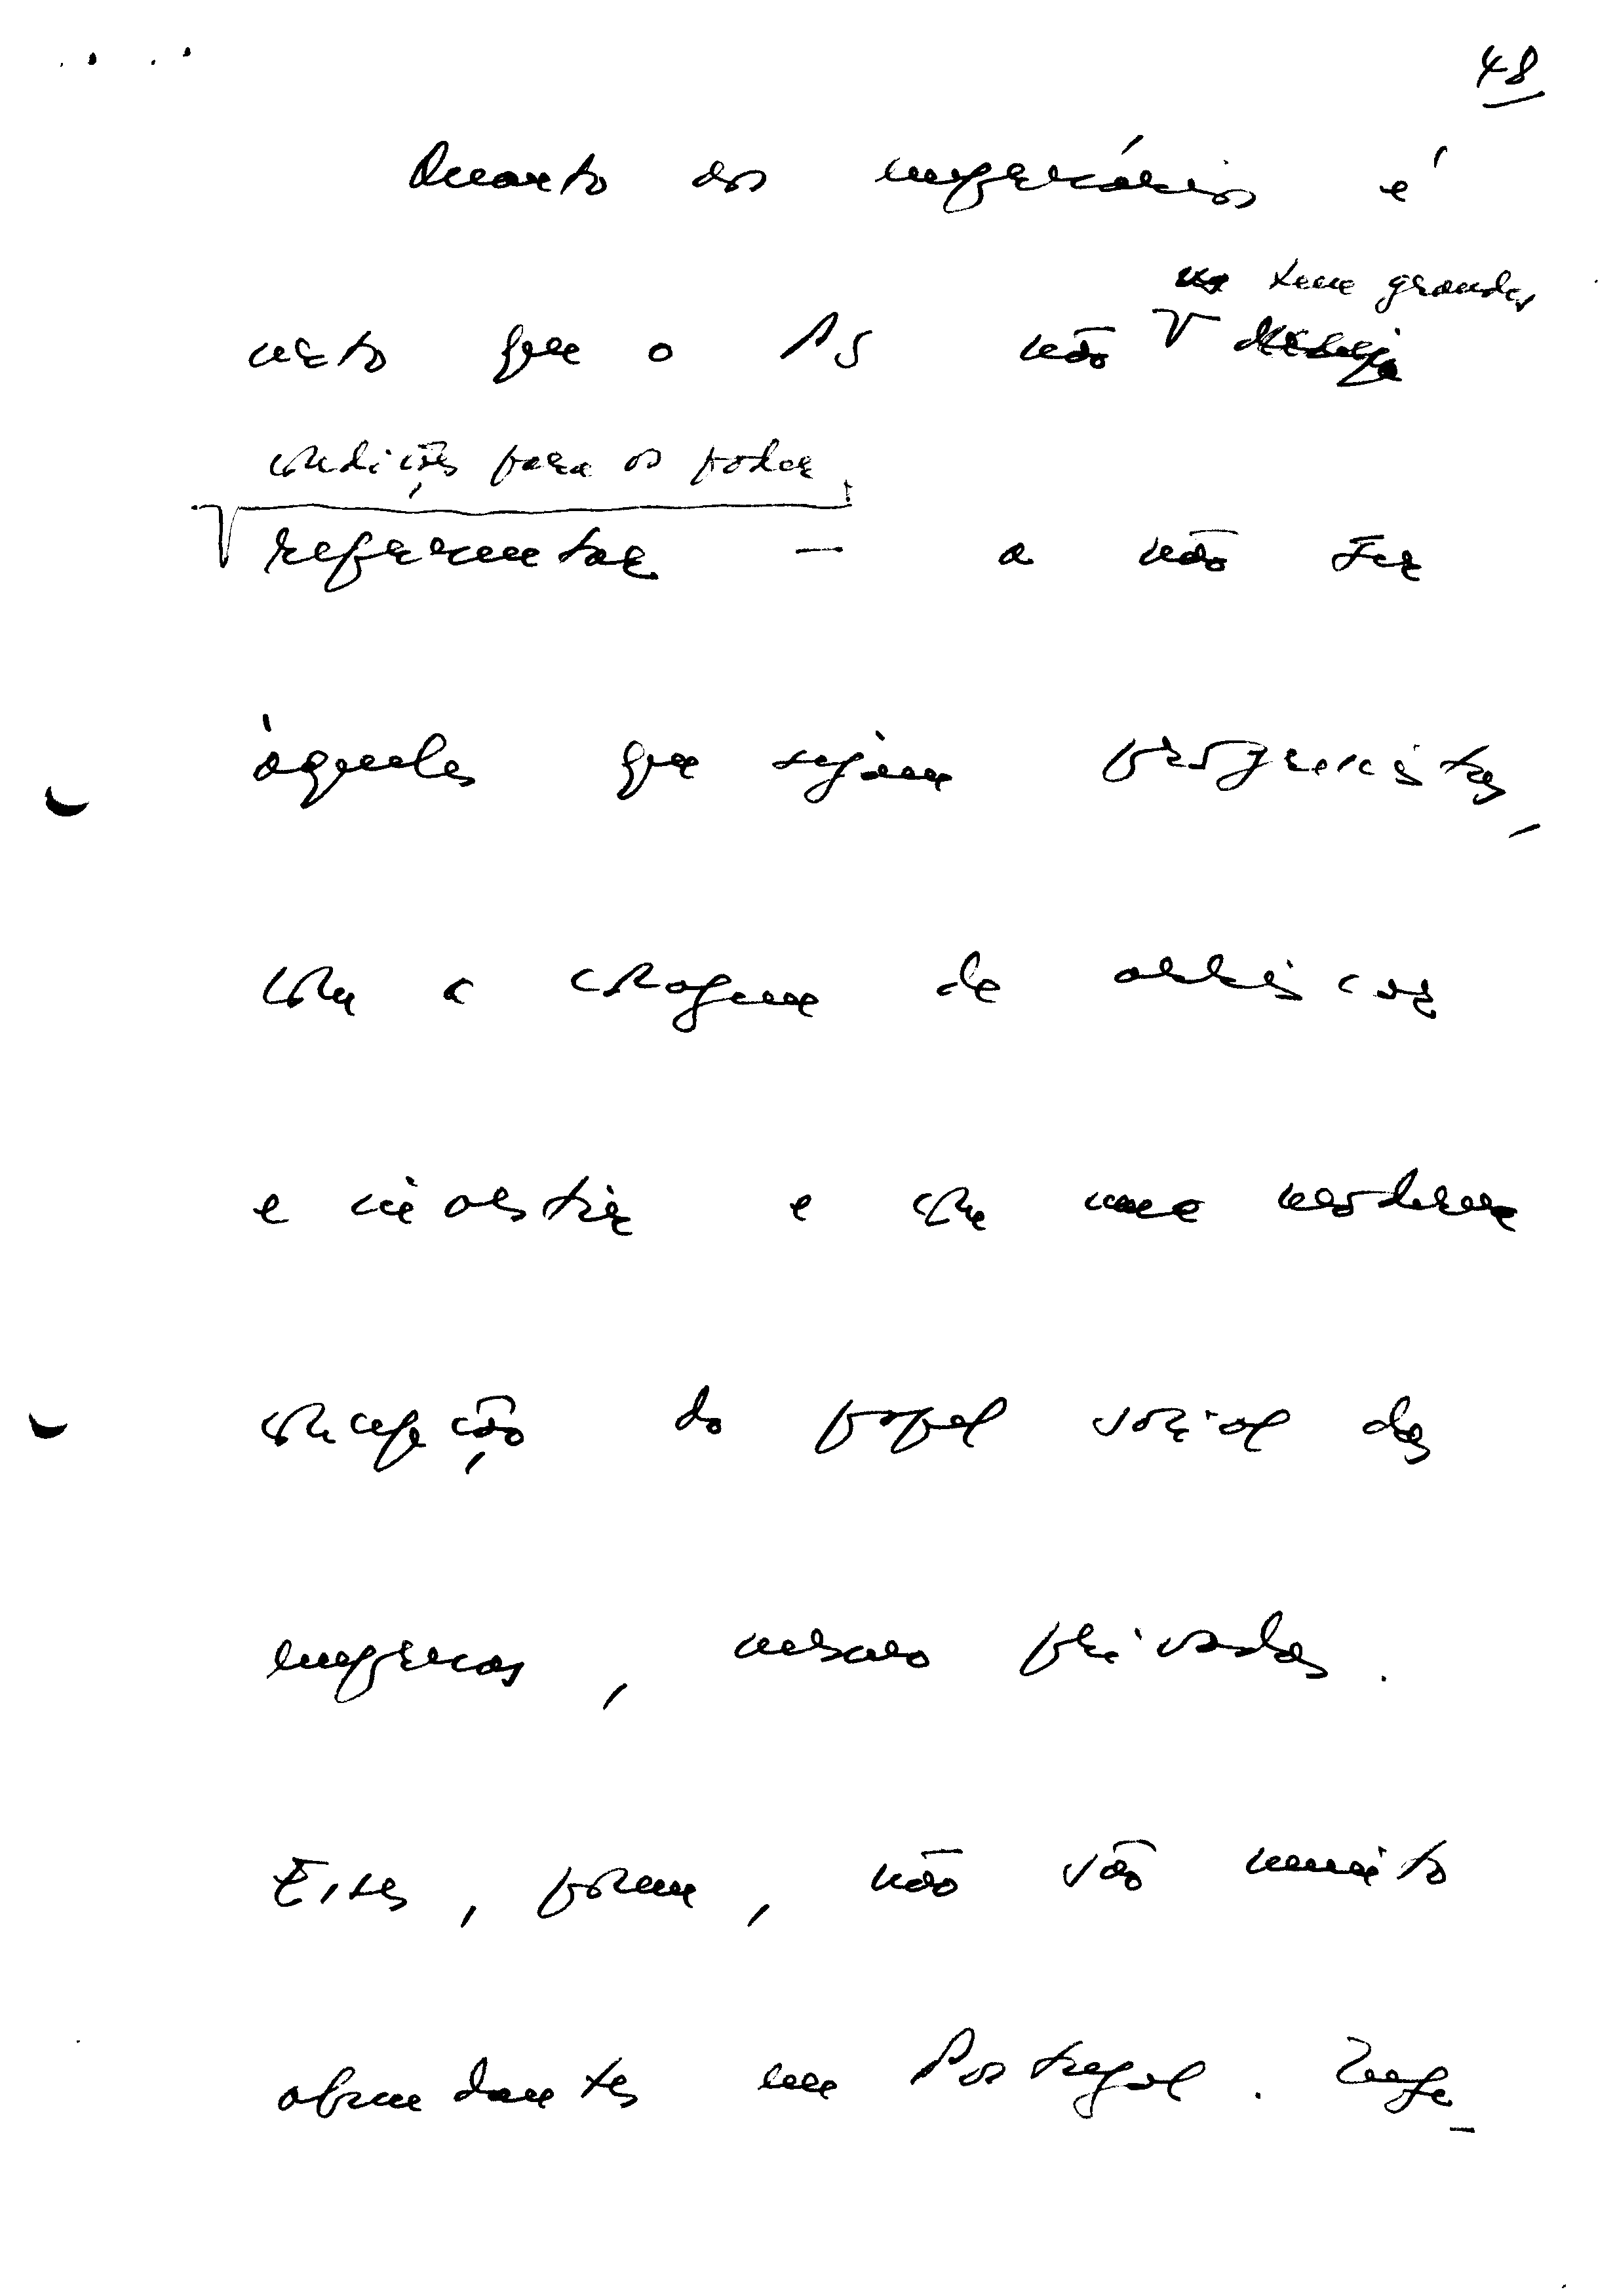 48
Quanto aos empresários é
não tem grandes
certo que o PS não
condições para os poder
representar — a não ser
àqueles que sejam progressistas,
com a coragem de arriscar
e investir e com uma moderna
concepção do papel social das
empresas, mesmo privadas.
Esses, porém, não são muito
abundantes em Portugal. Infe-